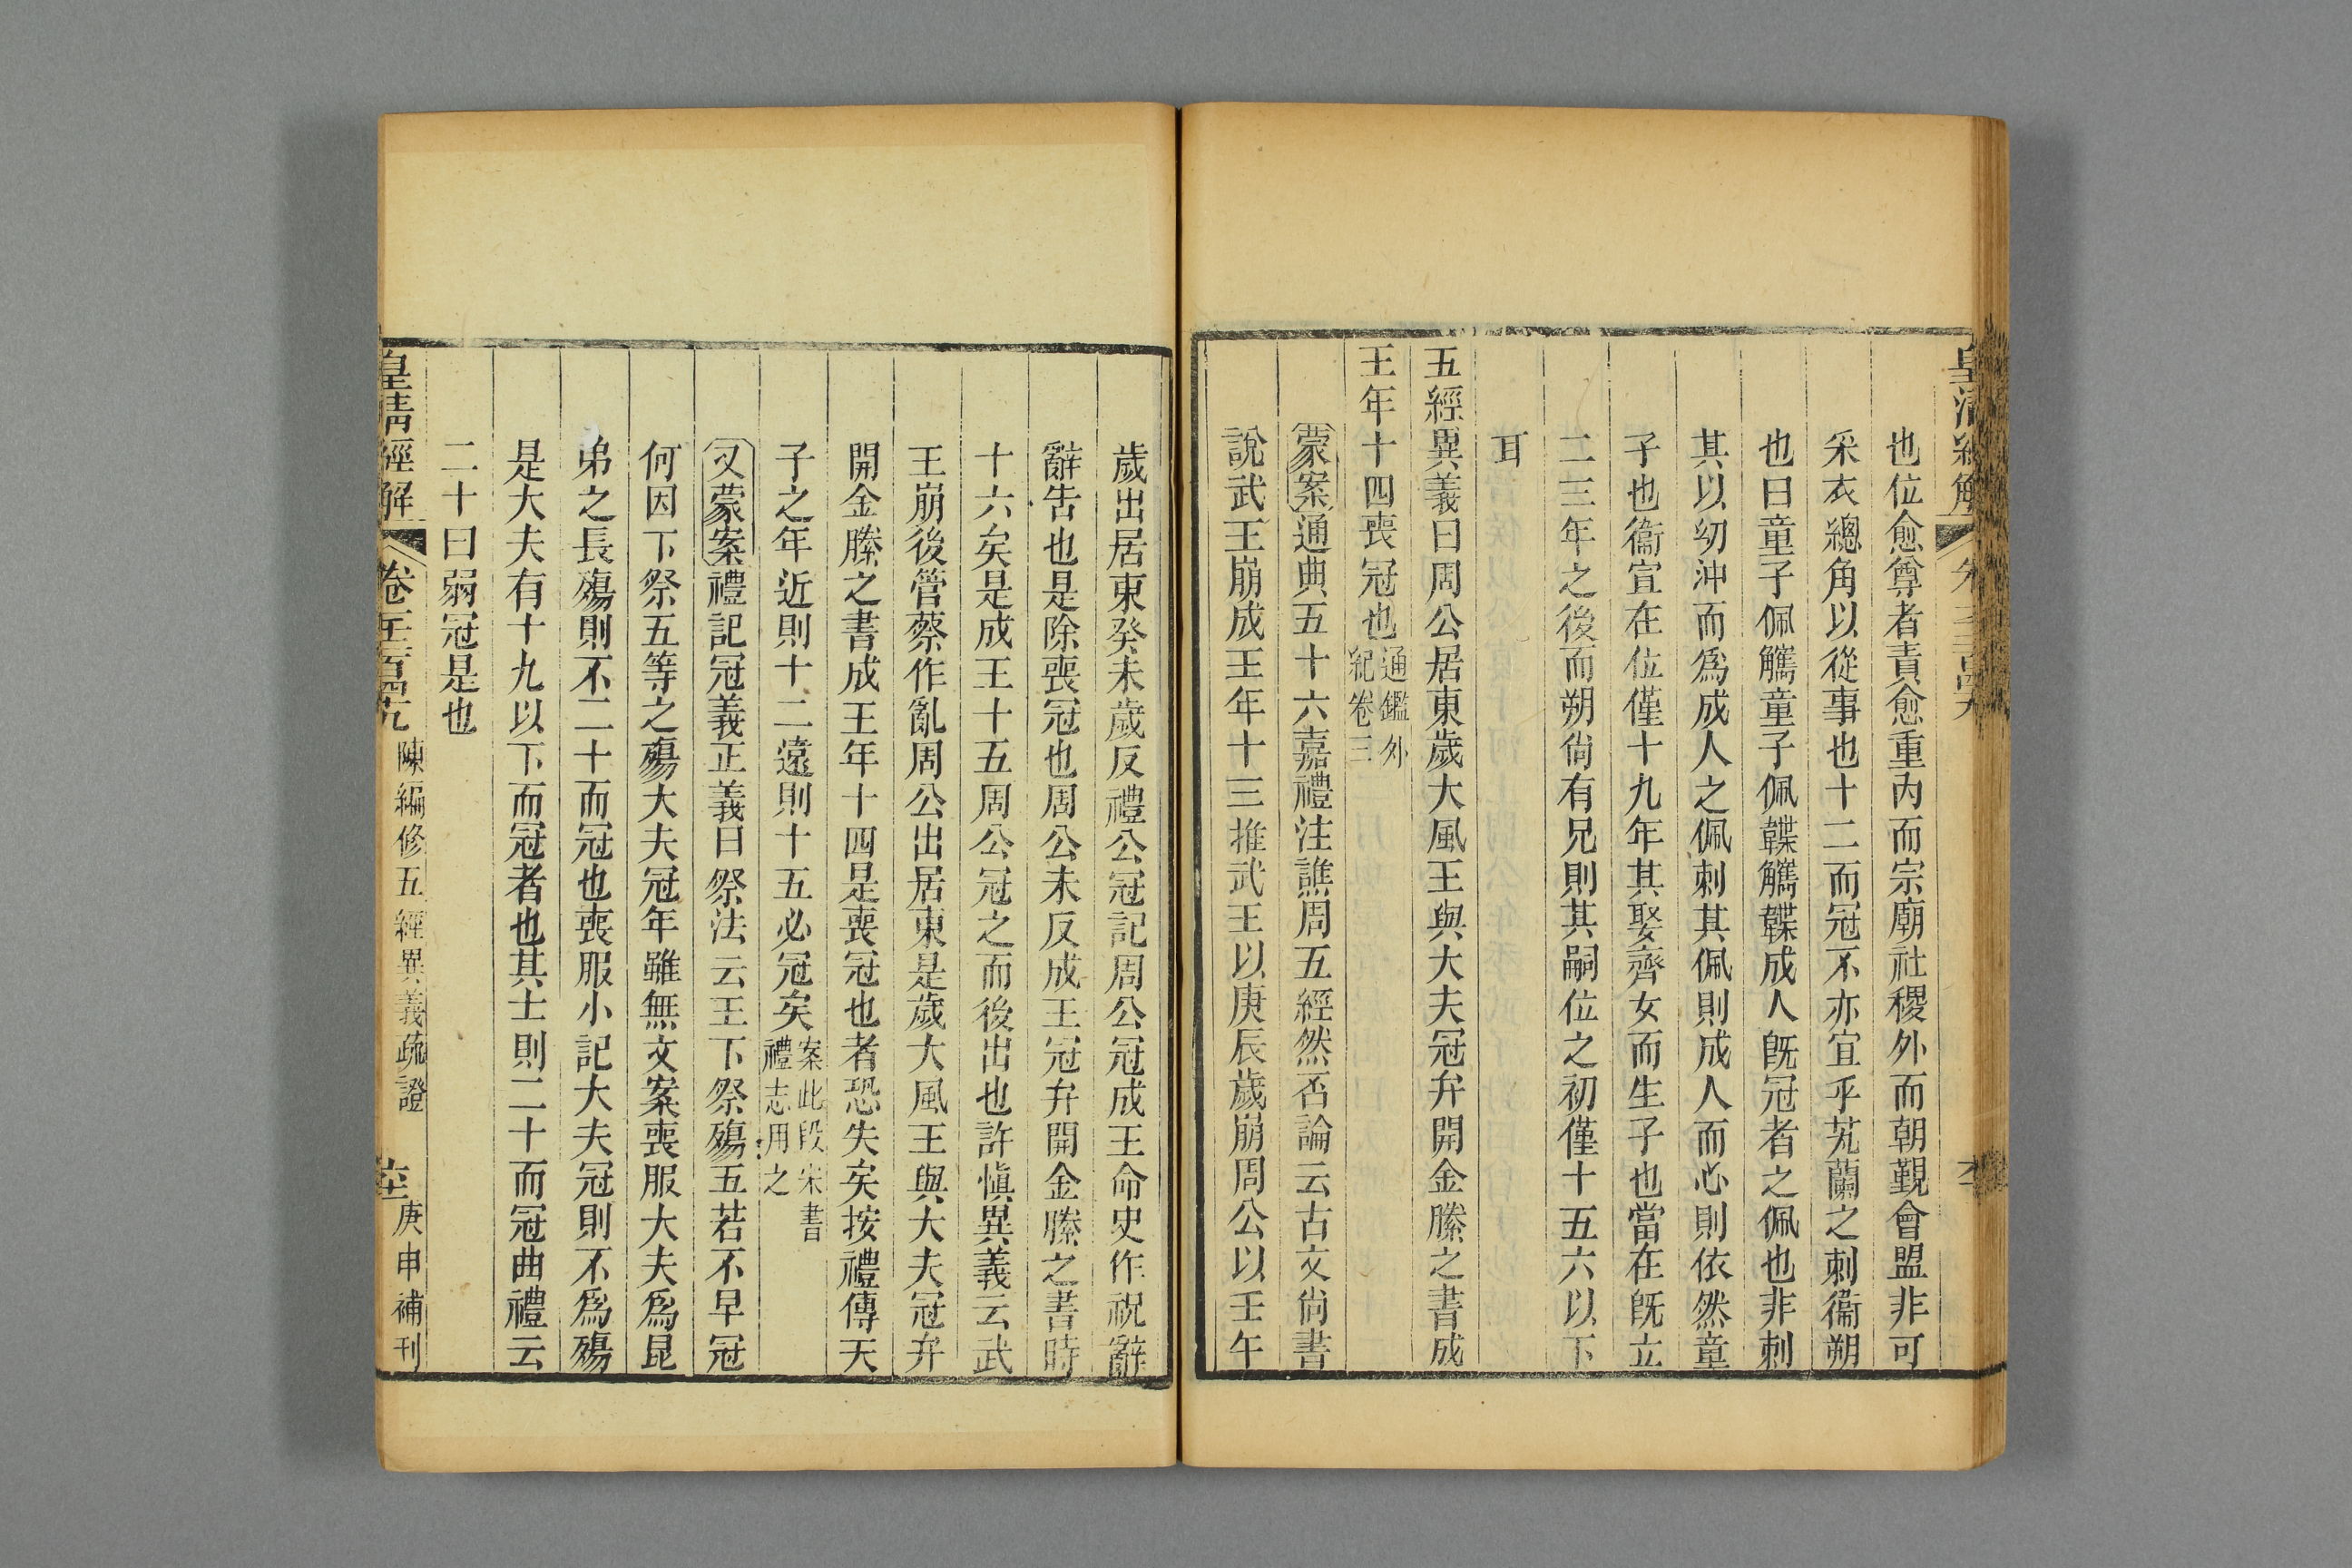 皇清經解
也位愈尊者責愈重內而宗廟社稷外而朝覲會盟非可
采衣總角以從事也十二而冠不亦宜乎芄蘭之刺衞朔
也曰童子佩觿童子佩韘觿韘成人旣冠者之佩也非刺
其以幼沖而爲成人之佩刺其佩則成人而心則依然童
子也衞宣在位僅十九年其娶齊女而生子也當在旣立
二三年之後而朔尙有兄則其嗣位之初僅十五六以下
耳
五經異義曰周公居東歲大風王與大夫冠弁開金縢之書成
王年十四喪冠也通鑑外紀卷三
蒙案通典五十六嘉禮注譙周五經然否論云古文尙書
說武王崩成王年十三推武王以庚辰歲崩周公以壬午
歲出居東癸未歲反禮公冠記周公冠成王命史作祝辭
辭告也是除喪冠也周公未反成王冠弁開金縢之書時
十六矣是成王十五周公冠之而後出也許愼異義云武
王崩後管蔡作亂周公出居東是歲大風王與大夫冠弁
開金縢之書成王年十四是喪冠也者恐失矣按禮傳天
子之年近則十二遠則十五必冠矣案此段宋書禮志用之
又蒙案禮記冠義正義曰祭法云王下祭殤五若不早冠
何因下祭五等之殤大夫冠年雖無文案喪服大夫爲昆
弟之長殤則不二十而冠也喪服小記大夫冠則不爲殤
是大夫有十九以下而冠者也其士則二十而冠曲禮云
二十曰弱冠是也
皇淸經解
陳編修五經異義疏證
庚申補刊